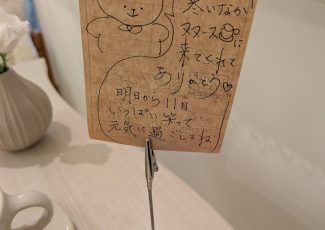 寒いなか
ヌヌースに
来てくれて
ありがとう♡
明日から11月
いっぱい笑って
元気に過ごしてね